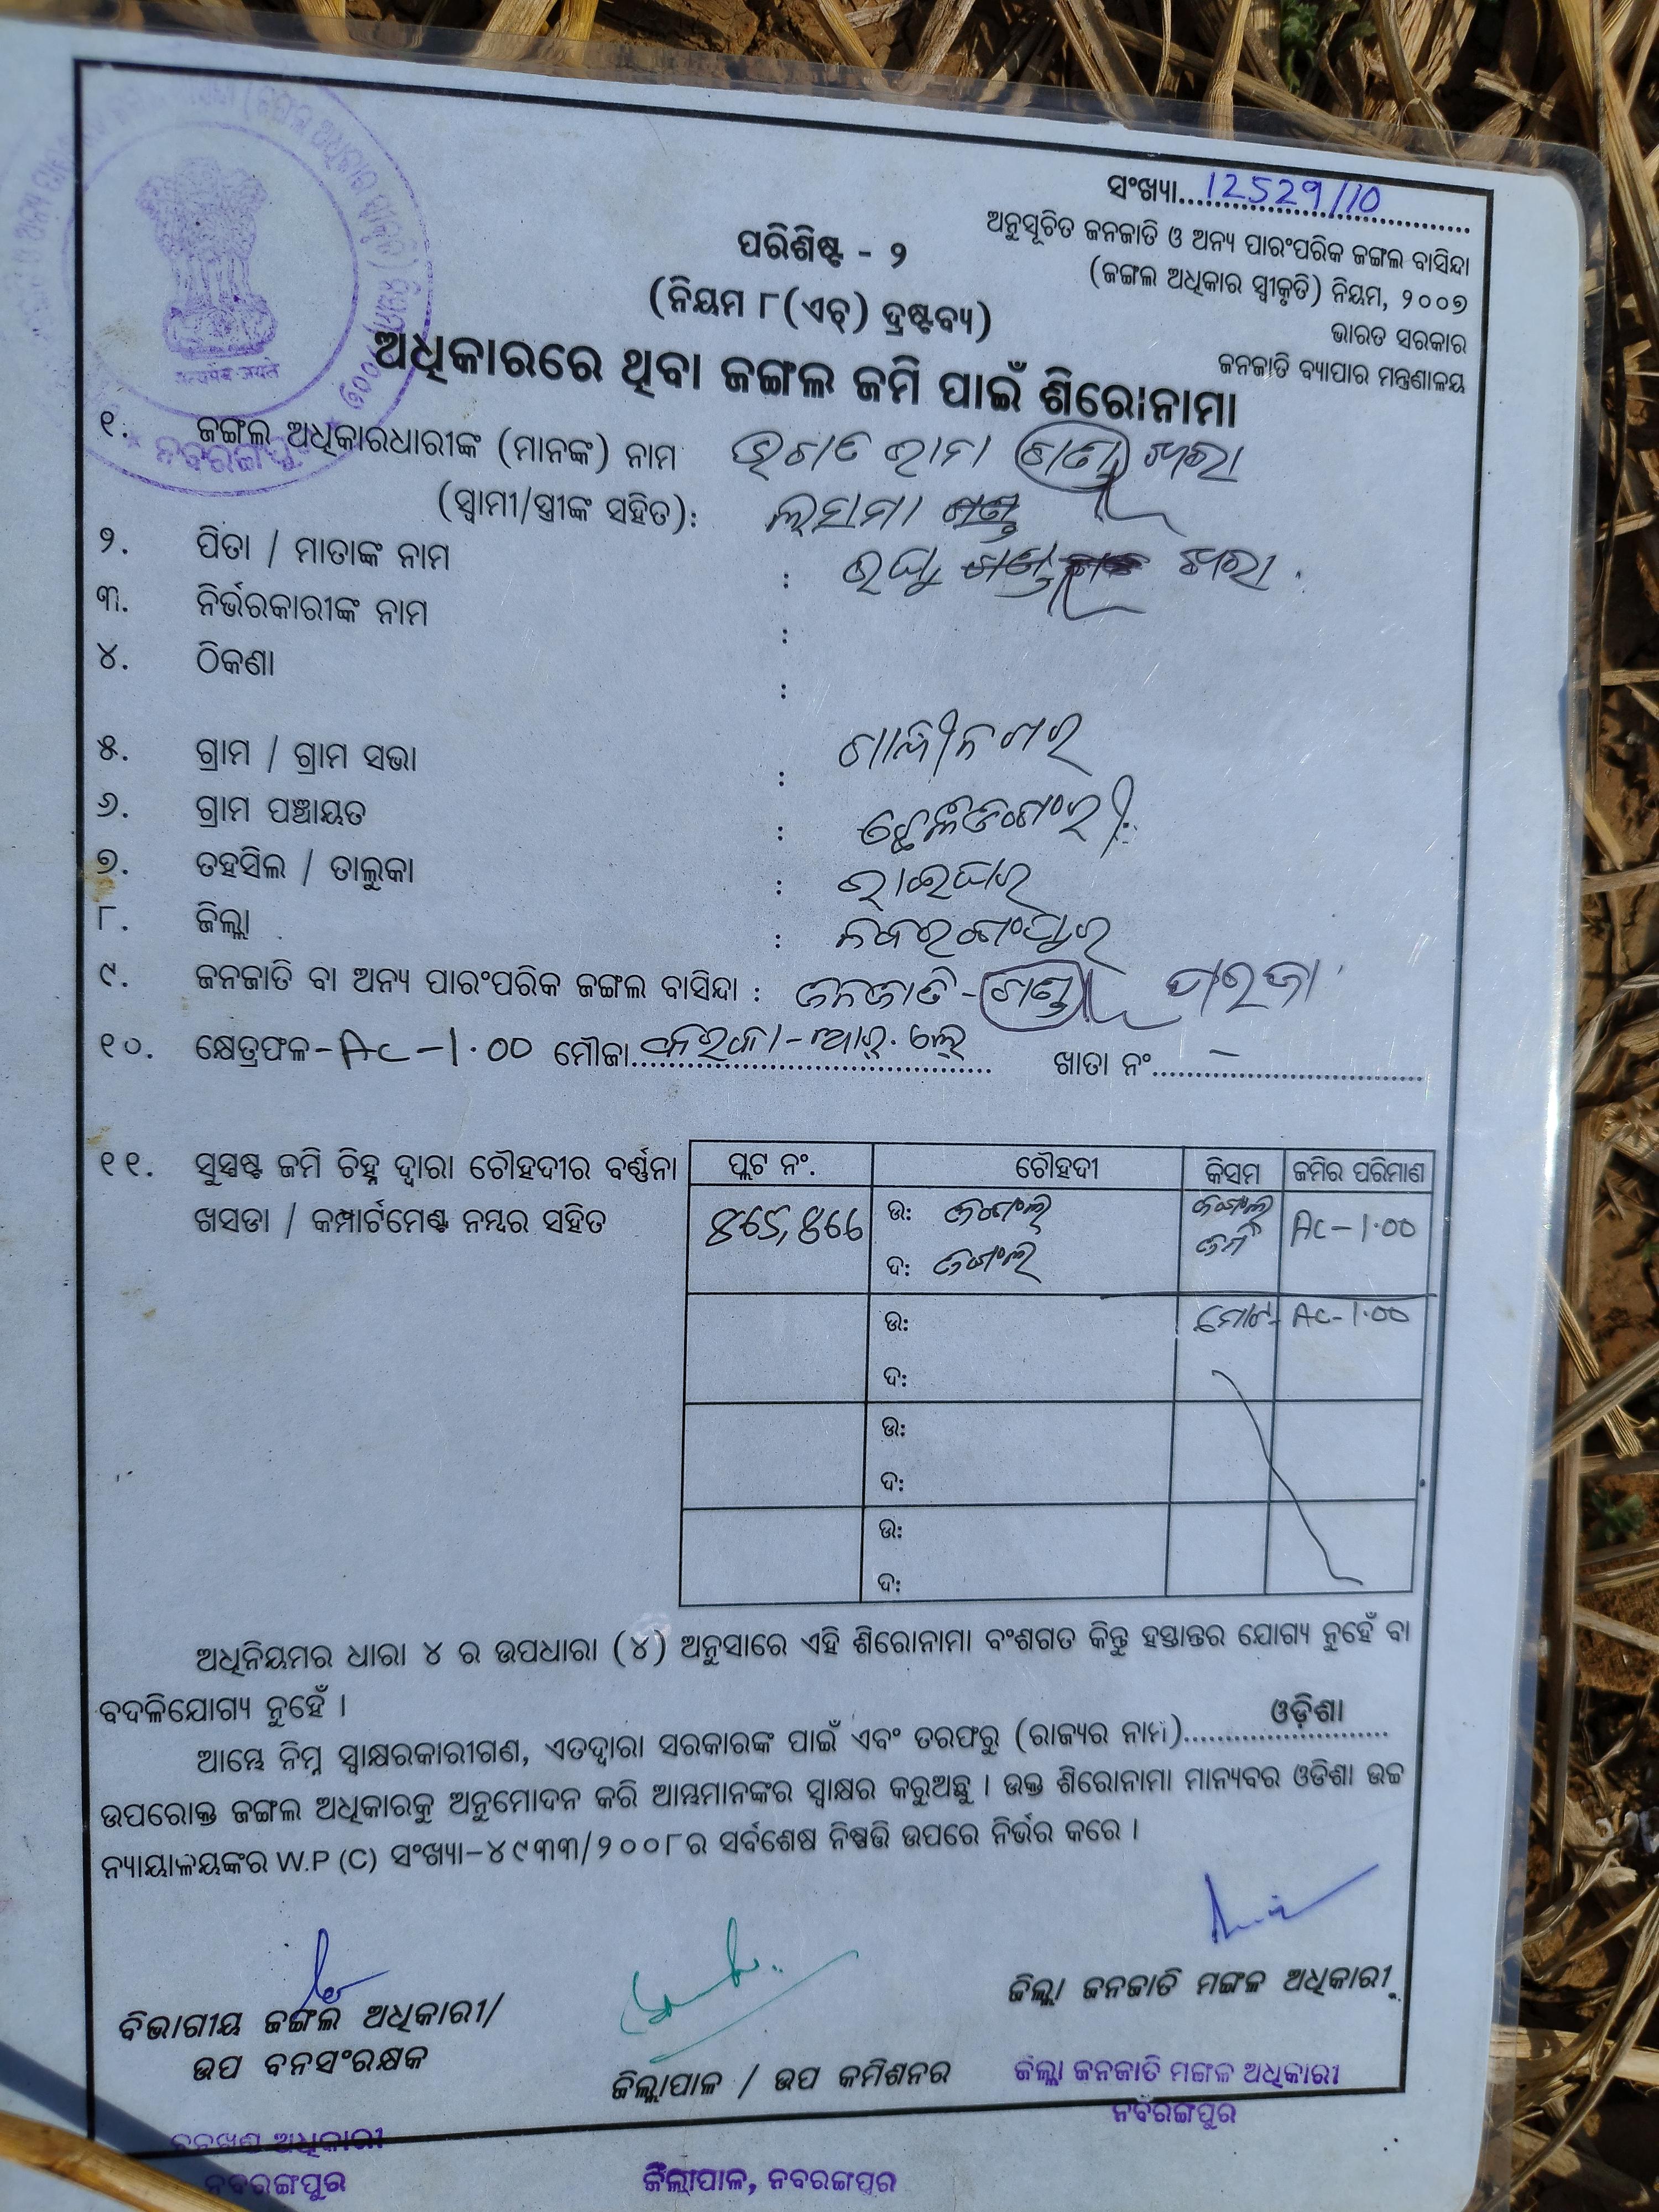 ସଂଖ୍ୟା....12529/10
ଅନୁସୂଚିତ ଜନଜାତି ଓ ଅନ୍ୟ ପାରଂପରିକ ଜଙ୍ଗଲ ବାସିନ୍ଦା
(ଜଙ୍ଗଲ ଅଧିକାର ସ୍ୱୀକୃତି) ନିୟମ, ୨୦୦୭
ଭାରତ ସରକାର
ଜନଜାତି ବ୍ୟାପାର ମନ୍ତ୍ରଣାଳୟ
ପରିଶିଷ୍ଟ - ୨
(ନିୟମ ୮(ଏଚ୍) ଦ୍ରଷ୍ଟବ୍ୟ)
सत्यमेव जयते
ନବରଙ୍ଗପୁର
ଅଧିକାରରେ ଥିବା ଜଙ୍ଗଲ ଜମି ପାଇଁ ଶିରୋନାମା
୧. ଜଙ୍ଗଲ ଅଧିକାରଧାରୀଙ୍କ (ମାନଙ୍କ) ନାମ
(ସ୍ୱାମୀ/ସ୍ତ୍ରୀଙ୍କ ସହିତ):
୨. ପିତା / ମାତାଙ୍କ ନାମ :
୩. ନିର୍ଭରକାରୀଙ୍କ ନାମ :
୪. ଠିକଣା :
୫. ଗ୍ରାମ / ଗ୍ରାମ ସଭା : ଗାନ୍ଧୀନଗର
୬. ଗ୍ରାମ ପଞ୍ଚାୟତ :
୭. ତହସିଲ / ତାଲୁକା : ରାଇଘର
୮. ଜିଲ୍ଲା : ନବରଙ୍ଗପୁର
୯. ଜନଜାତି ବା ଅନ୍ୟ ପାରଂପରିକ ଜଙ୍ଗଲ ବାସିନ୍ଦା : ଜନଜାତି - ଗଣ୍ଡ ପରଜା
୧୦. କ୍ଷେତ୍ରଫଳ - Ac - 1.00 ମୌଜା.... ଖାତା ନଂ.... –
୧୧. ସୁସ୍ପଷ୍ଟ ଜମି ଚିହ୍ନ ଦ୍ୱାରା ଚୌହଦୀର ବର୍ଣ୍ଣନା
ଖସଡା / କମ୍ପାର୍ଟମେଣ୍ଟ ନମ୍ବର ସହିତ
ପ୍ଲଟ ନଂ. ଚୌହଦୀ କିସମ ଜମିର ପରିମାଣ
ଉ: ଜଙ୍ଗଲ ଜଙ୍ଗଲ Ac – 1.00
ଦ: ଜଙ୍ଗଲ ଜମି
ଉ: ମୋଟ- Ac - 1.00
ଦ:
ଉ:
ଦ:
ଉ:
ଦ:
ଅଧିନିୟମର ଧାରା ୪ ର ଉପଧାରା (୪) ଅନୁସାରେ ଏହି ଶିରୋନାମା ବଂଶଗତ କିନ୍ତୁ ହସ୍ତାନ୍ତର ଯୋଗ୍ୟ ନୁହେଁ ବା
ବଦଳିଯୋଗ୍ୟ ନୁହେଁ ।
ଆମ୍ଭେ ନିମ୍ନ ସ୍ୱାକ୍ଷରକାରୀଗଣ, ଏତଦ୍ୱାରା ସରକାରଙ୍କ ପାଇଁ ଏବଂ ତରଫରୁ (ରାଜ୍ୟର ନାମ)....ଓଡ଼ିଶା....
ଉପରୋକ୍ତ ଜଙ୍ଗଲ ଅଧିକାରକୁ ଅନୁମୋଦନ କରି ଆମ୍ଭମାନଙ୍କର ସ୍ୱାକ୍ଷର କରୁଅଛୁ । ଉକ୍ତ ଶିରୋନାମା ମାନ୍ୟବର ଓଡିଶା ଉଚ୍ଚ
ନ୍ୟାୟାଳୟଙ୍କର W.P (C) ସଂଖ୍ୟା-୪୯୩୩/୨୦୦୮ର ସର୍ବଶେଷ ନିଷ୍ପତ୍ତି ଉପରେ ନିର୍ଭର କରେ ।
ବିଭାଗୀୟ ଜଙ୍ଗଲ ଅଧିକାରୀ/
ଉପ ବନସଂରକ୍ଷକ
ଜିଲ୍ଲାପାଳ / ଉପ କମିଶନର
ଜିଲ୍ଲା ଜନଜାତି ମଙ୍ଗଳ ଅଧିକାରୀ
ଜିଲ୍ଲା ଜନଜାତି ମଙ୍ଗଳ ଅଧିକାରୀ
ନବରଙ୍ଗପୁର
ବନଖଣ୍ଡ ଅଧିକାରୀ
ନବରଙ୍ଗପୁର
ଜିଲ୍ଲାପାଳ, ନବରଙ୍ଗପୁର